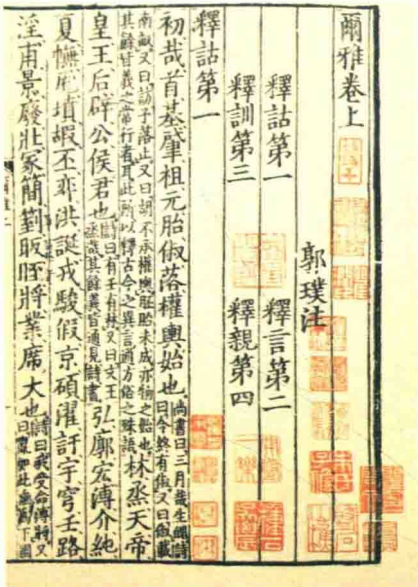 爾雅卷上
郭璞注
釋詁第一 釋言第二
釋訓第三 釋親第四
釋詁第一
初哉首基肈祖元胎俶落權輿始也尚書曰三月哉生魄詩曰令終有俶又曰俶載
南畝又曰訪予落止又曰胡不承權輿胚胎未成亦物之始也其餘皆義之常行者耳此所以釋古今之異言通方俗之殊語林烝天帝
皇王后辟公侯君也詩曰有壬有林又曰文王烝哉其餘義皆通見詩書弘廓宏溥介純
夏幠厖墳嘏丕弈洪誕戎駿假京碩濯訏宇穹壬路
淫甫景廢壯冢簡箌昄晊將業席大也詩曰我受命溥將又曰亂如此幠為下國